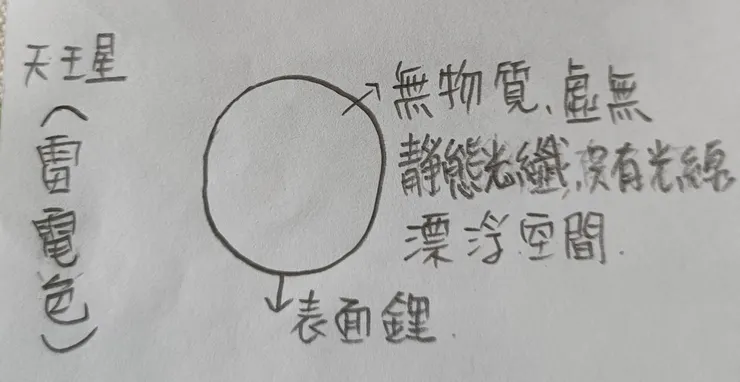 天王星
(雷電色)
無物質、虛無
靜態光纖,沒有光線
漂浮空間.
表面鋰.